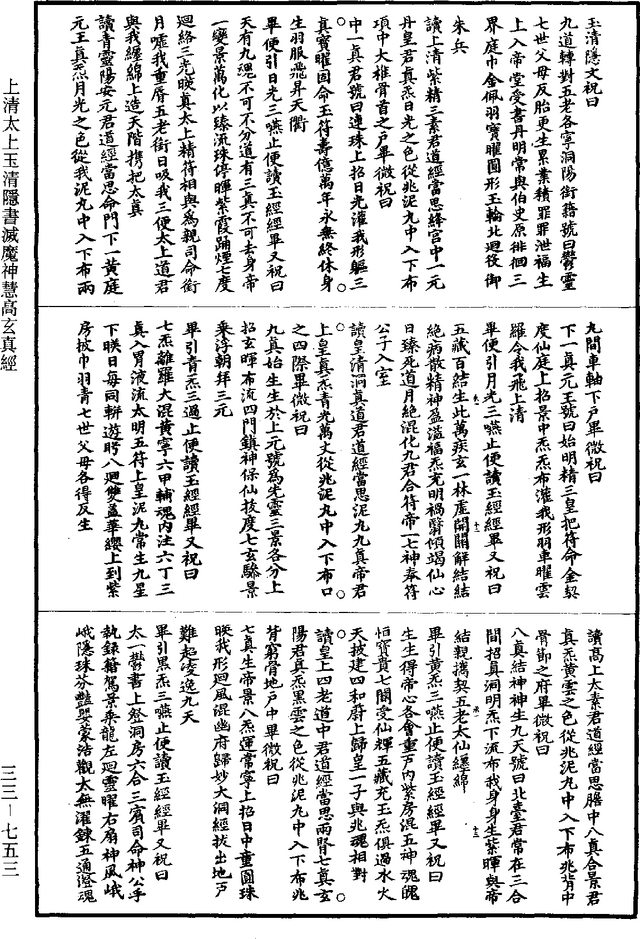 玉清隱文祝曰
九道轉對五老各寧洞陽銜籍號曰鬱靈
七世父母反胎更生累業積罪罪泄福生
上入帝堂受書丹明常與伯史原徘徊三
界庭巾金佩羽寶曜圓形玉輪北迴後御
朱兵
讀上清紫精三素君道經當思絳宮中一元
丹皇君真炁日光之色從兆泥丸中入下布
項中大椎骨首之戶畢微祝曰
中一真君號曰連珠上招日光灌我形軀三
真寶曜固命玉符壽億萬年永無終休身
生羽服飛昇天衢
畢便引日光三嚥止便讀玉經經畢又祝曰
天有九魂不可不分道有三真不可去身帝
一變景萬化以臻流珠停暉紫霞踊煙七度
迴絡三光映真太上精符相與為親司命銜
月噓我重脣五老銜日吸我三便太上道君
與我纏綿上造天階攜把太真
讀青靈陽安元君道經當思命門下一黃庭
元王真炁月光之色從我泥丸中入下布兩
九間車軸下戶畢微祝曰
下一真元王號曰始明精三皇把符命金契
度仙庭上招景中炁炁布灌我形羽車曜雲
羅令我飛上清
畢便引月光三嚥止便讀玉經經畢又祝曰
五藏百結生此萬疾玄一林虛開關解結結
絕病散精神盈溢福炁充明禍翳傾竭仙心
日臻死道月絕混化九君合符帝一七神奉符
公子入室
讀皇清洞真道君道經當思泥丸九真帝君
上皇真炁青光萬丈從兆泥丸中入下布口
之四際畢微祝曰
九真始生生於上元號為先靈三景各分上
招玄暉布流四門鎮神保仙拔度七玄驂景
乘浮朝拜三元
畢引青炁三過止便讀玉經經畢又祝曰
七炁離羅大混黃寧六甲輔魂內注六丁三
真入胃液流太明五符上皇泥丸常生九星
下映日母同軿遊眄八迴雙蓋華纓上到紫
房披巾羽青七世父母各得反生
讀高上太素君道經當思膽中八真合景君
真炁黃雲之色從兆泥丸中入下布兆背中
骨節之府畢微祝曰
八真結神神生九天號曰北臺君常在三合
間招真洞明炁下流布我身身生紫暉與帝
結親攜契五老太仙纏綿
畢引黃炁三嚥止便讀玉經經畢又祝曰
生生得帝心各會重戶內紫房混五神魂魄
恒寶貴七關受仙輝五藏充玉炁俱過水火
天披建四和廚上歸皇一子與兆魂相對
讀皇上四老道中君道經當思兩腎七真玄
陽君真炁黑雲之色從兆泥丸中入下布兆
背窮骨地戶中畢微祝曰
七真生帝景八炁運常寧上招日中童圓珠
映我形迴風混幽府歸妙大洞經拔出地戶
難超凌逸九天
畢引黑炁三嚥止便讀玉經經畢又祝曰
太一鬱書上登洞房六合三賓司命神公手
執錄籍駕景乘龍左迴靈曜右扇神風峨
峨隱珠芬豔嬰蒙浩觀太無濯鍊五通澄魂
上清太上玉清隱書滅魔神慧高玄真經
三三—七五三